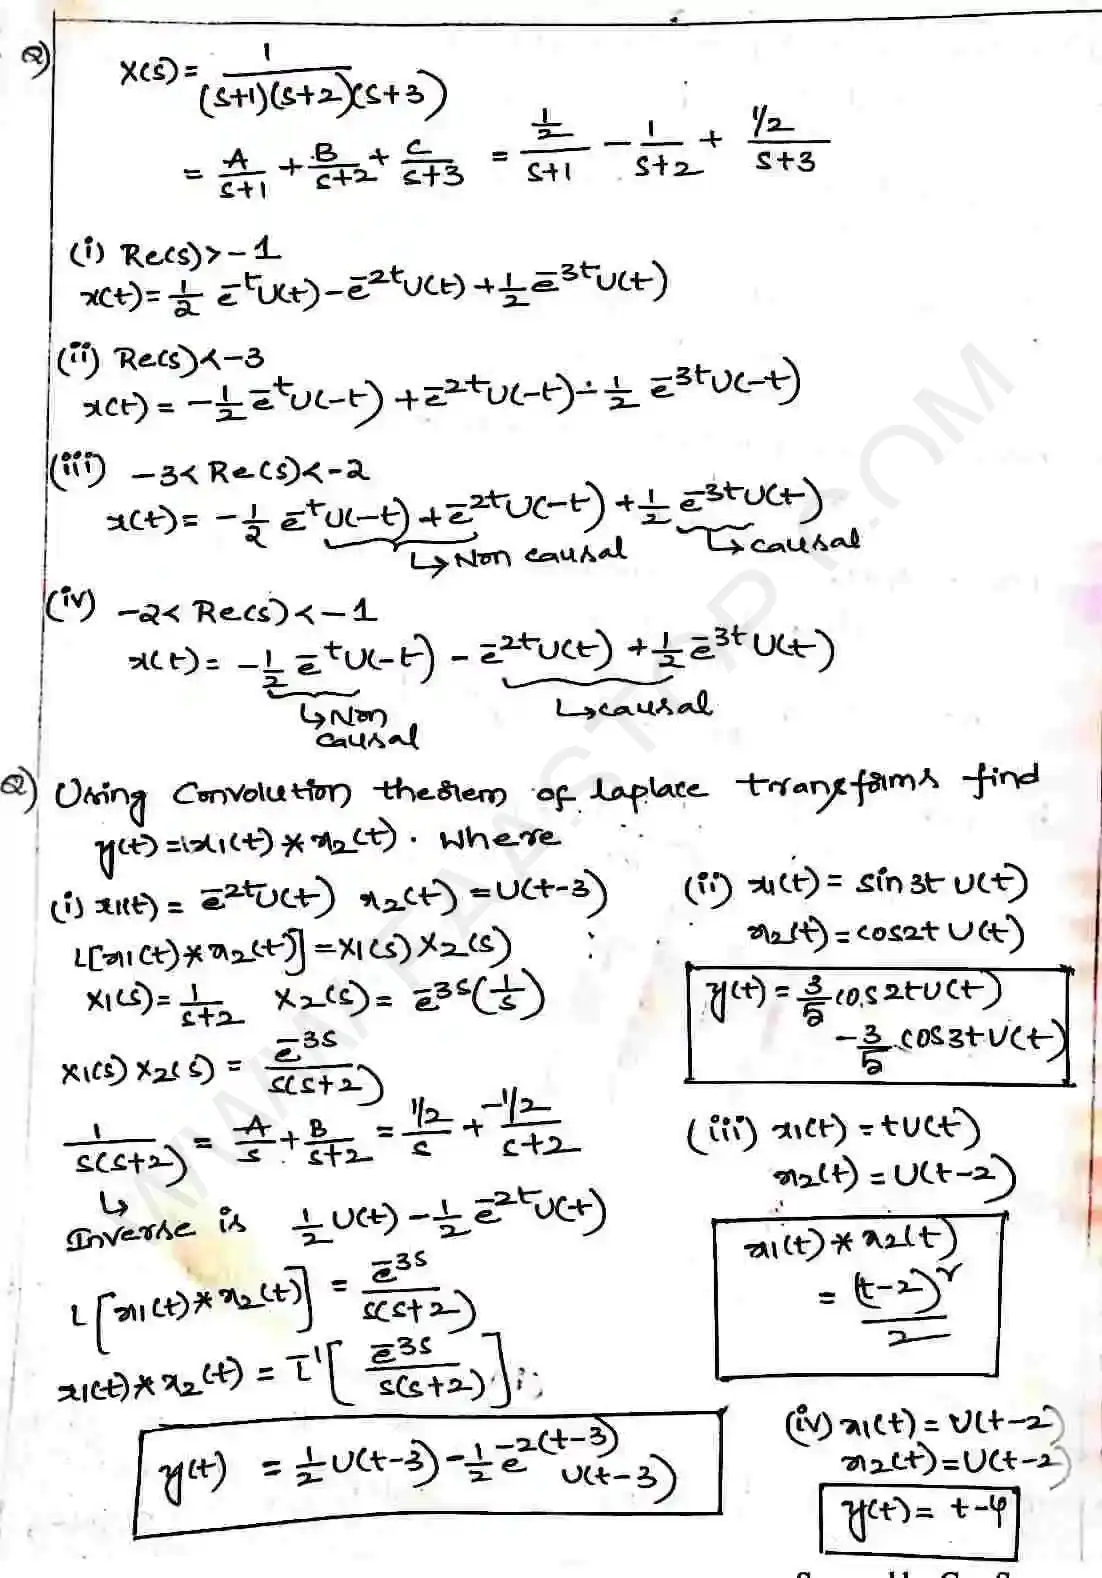 Q)
X(s) = 1/((s+1)(s+2)(s+3))
= A/(s+1) + B/(s+2) + C/(s+3) = (1/2)/(s+1) - 1/(s+2) + (1/2)/(s+3)
(i) Re(s) > -1
x(t) = 1/2 e^-t U(t) - e^-2t U(t) + 1/2 e^-3t U(t)
(ii) Re(s) < -3
x(t) = -1/2 e^-t U(-t) + e^-2t U(-t) - 1/2 e^-3t U(-t)
(iii) -3 < Re(s) < -2
x(t) = -1/2 e^-t U(-t) + e^-2t U(-t) + 1/2 e^-3t U(t)
↳ Non causal ↳ causal
(iv) -2 < Re(s) < -1
x(t) = -1/2 e^-t U(-t) - e^-2t U(t) + 1/2 e^-3t U(t)
↳ Non causal ↳ causal
Q) Using Convolution theorem of laplace transforms find
y(t) = x1(t) * x2(t). where
(i) x1(t) = e^-2t U(t) x2(t) = U(t-3)
L[x1(t) * x2(t)] = X1(s) X2(s)
X1(s) = 1/(s+2) X2(s) = e^-3s (1/s)
X1(s) X2(s) = e^-3s/(s(s+2))
1/(s(s+2)) = A/s + B/(s+2) = (1/2)/s + (-1/2)/(s+2)
↳
Inverse is 1/2 U(t) - 1/2 e^-2t U(t)
L[x1(t) * x2(t)] = e^-3s/(s(s+2))
x1(t) * x2(t) = L^-1[e^-3s/(s(s+2))]
y(t) = 1/2 U(t-3) - 1/2 e^-2(t-3) U(t-3)
(ii) x1(t) = sin 3t U(t)
x2(t) = cos2t U(t)
y(t) = 3/5 cos 2t U(t)
- 3/5 cos 3t U(t)
(iii) x1(t) = t U(t)
x2(t) = U(t-2)
x1(t) * x2(t)
= (t-2)^2/2
(iv) x1(t) = U(t-2)
x2(t) = U(t-2)
y(t) = t-4